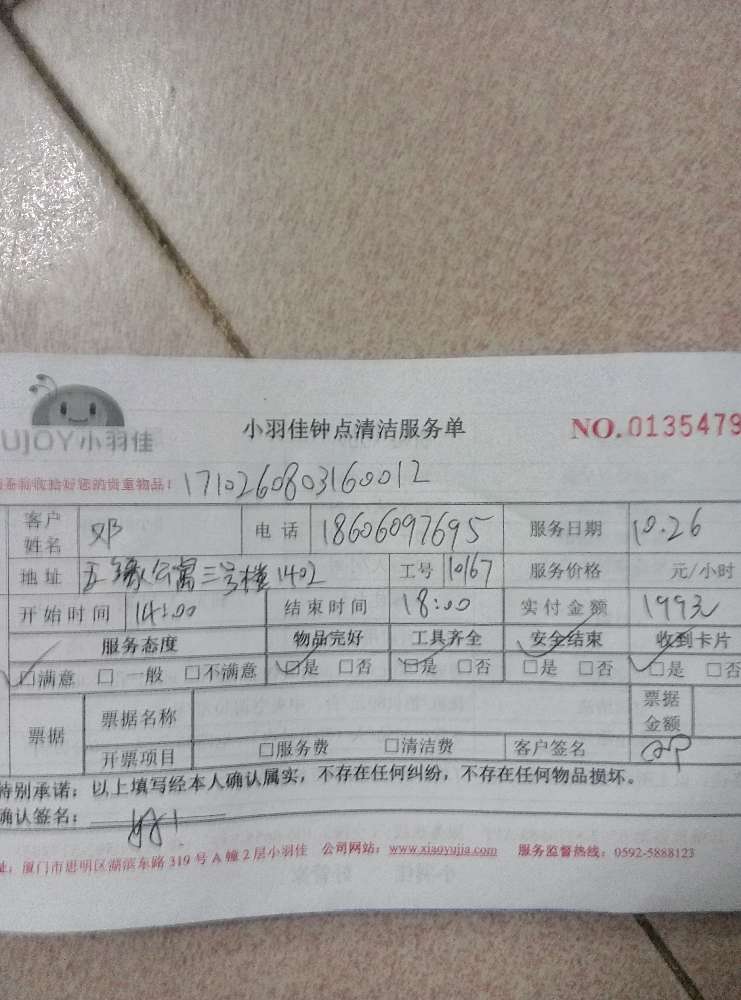 UJOY小羽佳
小羽佳钟点清洁服务单
NO.0135479
备物收拾好您的贵重物品: 1710260803160012
客户姓名 邓 电话 18606097695 服务日期 10.26
地址 公寓三号楼1402 工号 10167 服务价格 元/小时
开始时间 14:00 结束时间 18:00 实付金额 1993
服务态度 物品完好 工具齐全 安全结束 收到卡片
□满意 □一般 □不满意 □是 □否 □是 □否 □是 □否 □是 □否
票据 票据名称 票据金额
开票项目 □服务费 □清洁费 客户签名 邓
特别承诺:以上填写经本人确认属实,不存在任何纠纷,不存在任何物品损坏。
确认签名:
址:厦门市思明区湖滨东路319号A幢2层小羽佳 公司网站:www.xiaoyujia.com 服务监督热线:0592-5888123